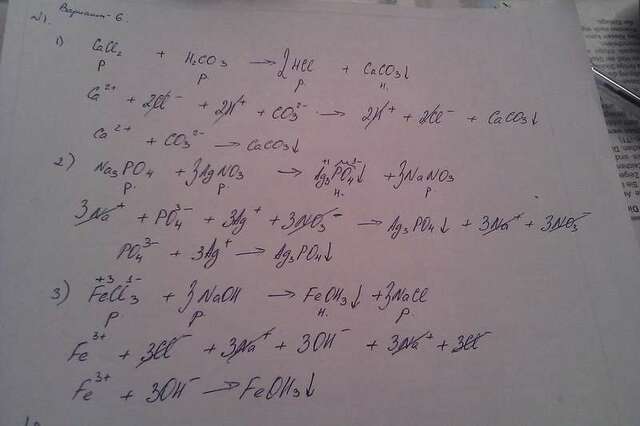 Вариант-6.
№1.
1) CaCl₂ + H₂CO₃ → 2HCl + CaCO₃↓
р р р н.
Ca²⁺ + 2Cl⁻ + 2H⁺ + CO₃²⁻ → 2H⁺ + 2Cl⁻ + CaCO₃↓
Ca²⁺ + CO₃²⁻ → CaCO₃↓
2) Na₃PO₄ + 3AgNO₃ → Ag₃PO₄↓ + 3NaNO₃
р. р. н. р.
3Na⁺ + PO₄³⁻ + 3Ag⁺ + 3NO₃⁻ → Ag₃PO₄↓ + 3Na⁺ + 3NO₃⁻
PO₄³⁻ + 3Ag⁺ → Ag₃PO₄↓
+3 1-
3) FeCl₃ + 3NaOH → FeOH₃↓ + 3NaCl
р р н. р.
Fe³⁺ + 3Cl⁻ + 3Na⁺ + 3OH⁻ + 3Na⁺ + 3Cl⁻
Fe³⁺ + 3OH⁻ → FeOH₃↓